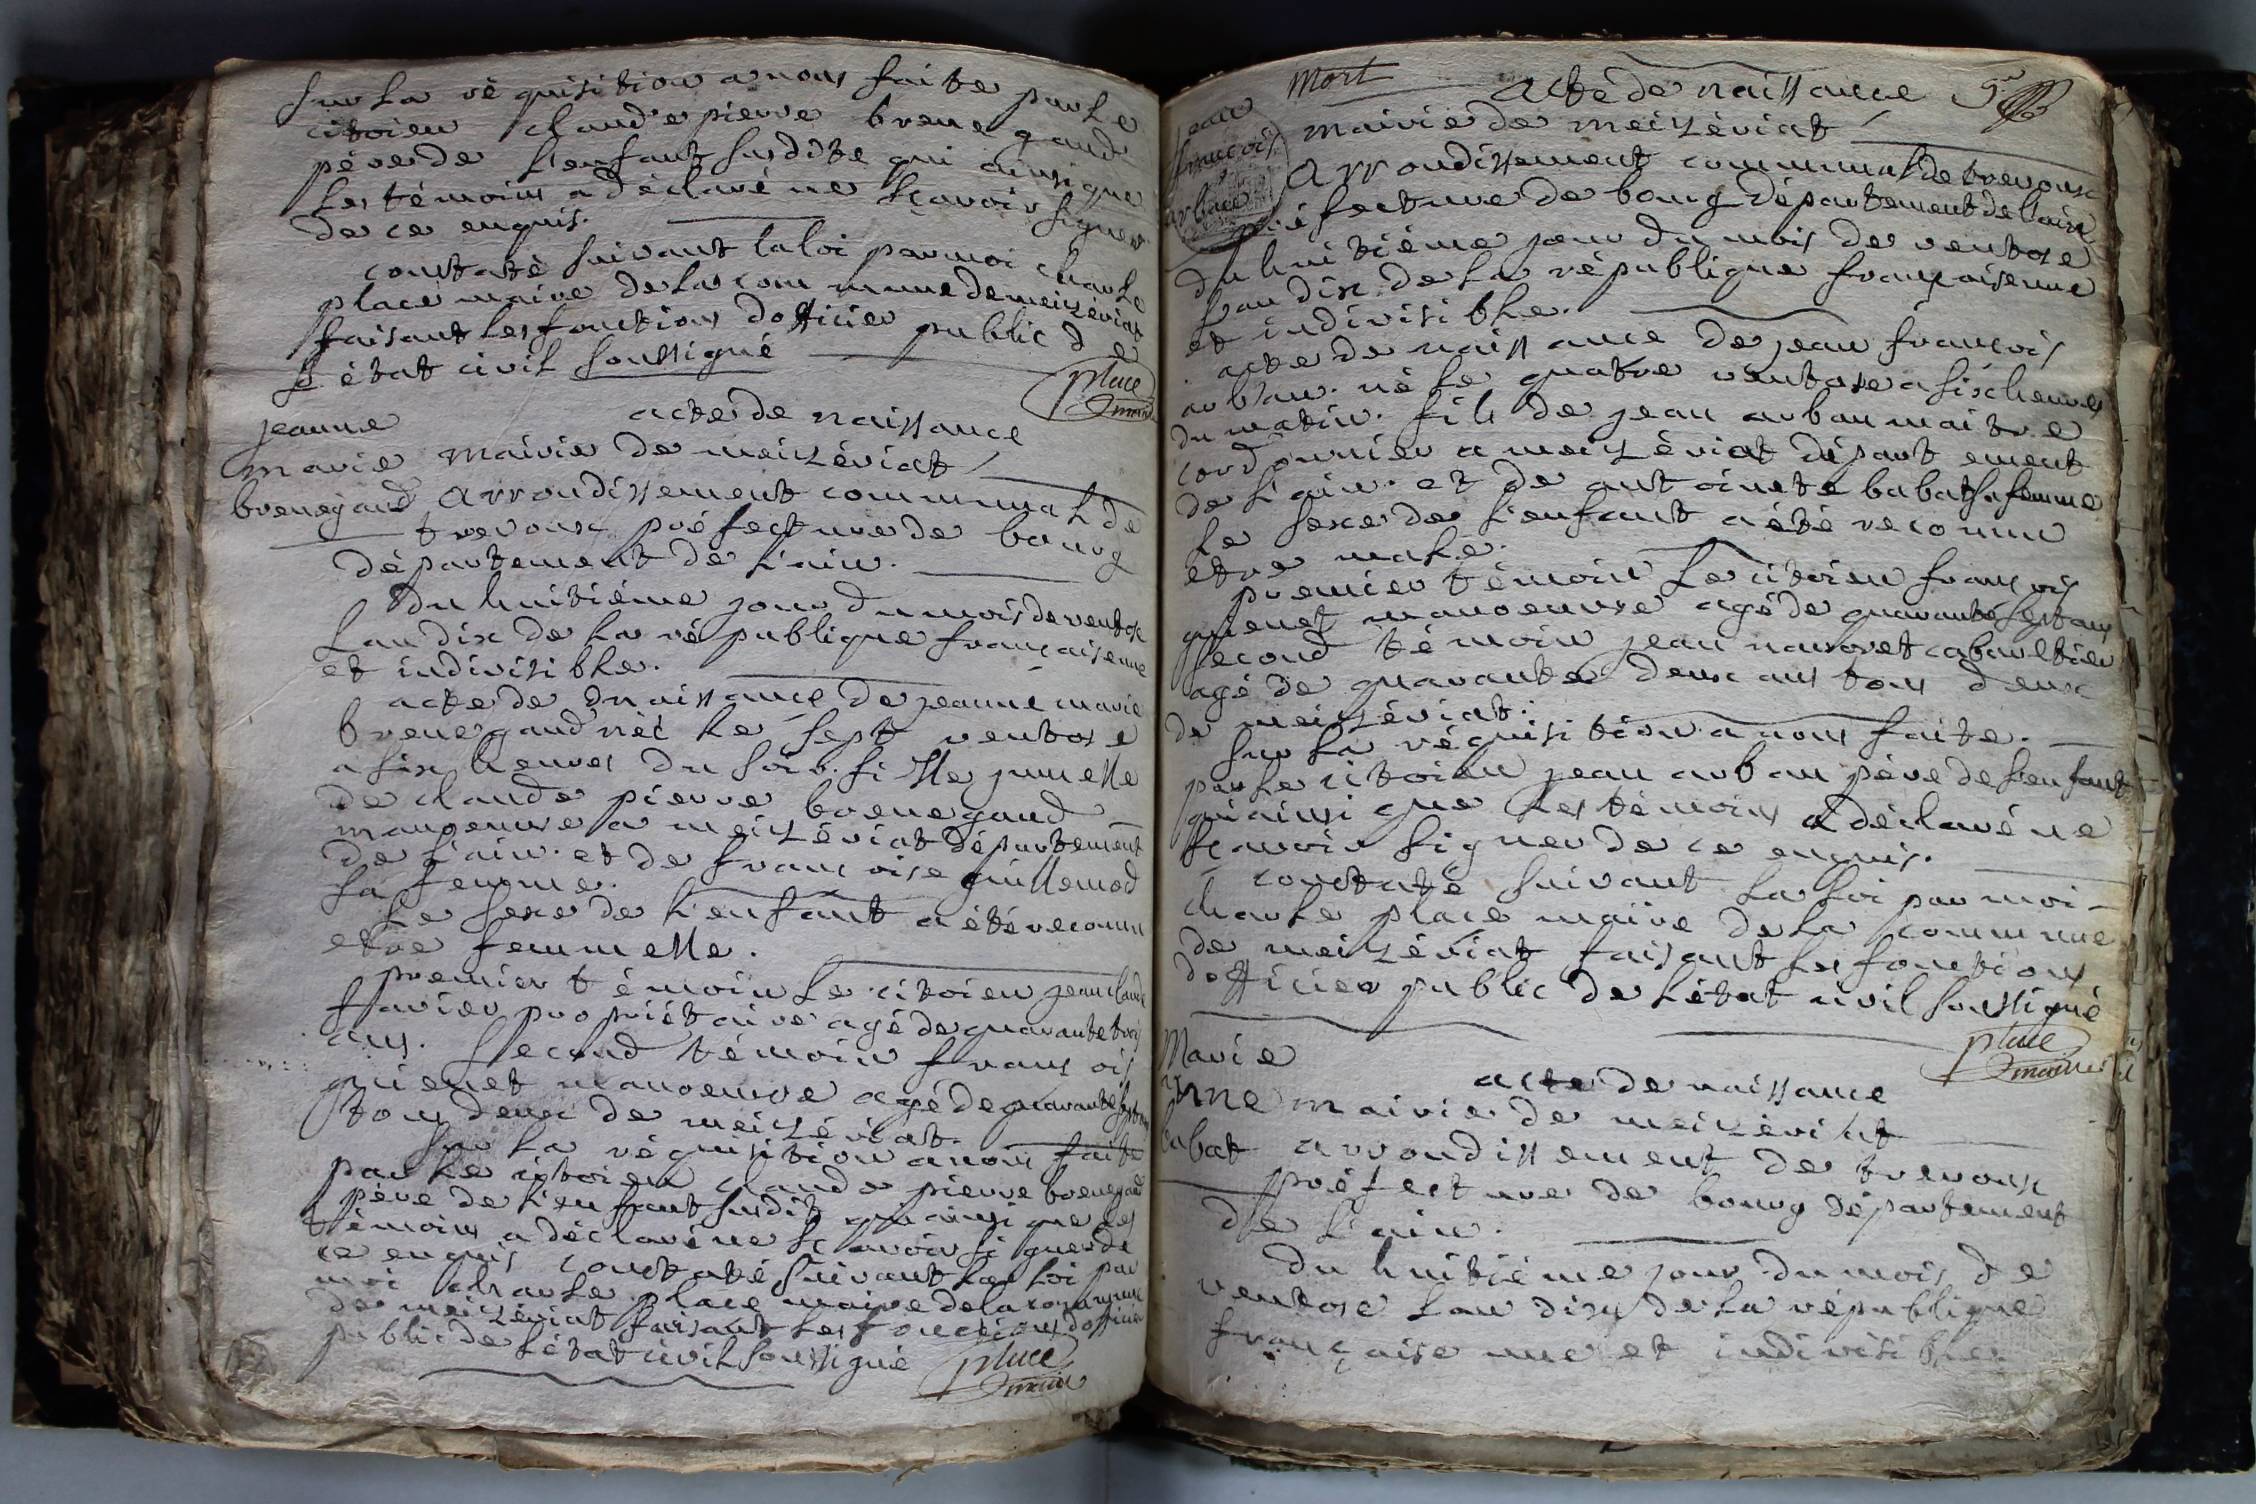 sur la réquisition a nous faite par le
citoien claude pierre brenegaud
pére de l'enfant susdite qui ainsi que
les témoins a déclaré ne sçavoir signer
de ce enquis.
constaté suivant la loi par moi charle
place maire de la commune de meizériat
faisant les fonctions dofficier public de
l'état civil soussigné
place
maire
jeanne
marie
brenegaud
acte de naissance
mairie de meizériat
arrondissement communal de
trevoux préfecture de bourg
département de l'ain.
du huitiéme jour du mois de ventose
l'an dix de la république française une
et indivisible.
acte de naissance de jeanne marie
brenegaud née le sept ventose
a six heures du soir. fille jumelle
de claude pierre brenegaud
manoeuvre a meizériat département
de l'ain. et de françoise guillemod
sa femme.
le sexe de l'enfant a été reconnu
etre femmelle.
premier témoin le citoien jean claude
favier propriétaire agé de quarante trois
ans. second témoin françois
guienet manoeuvre agé de quarante sept ans
tous deux de meizériat.
sur la réquisition a nous faite
par le citoien claude pierre brenegaud
pére de l'enfant susdit qui ainsi que les
témoins a déclaré ne sçavoir signer de
ce enquis constaté suivant la loi par
moi charle place maire de la commune
de meizériat faisant les fonctions dofficier
public de l'état civil soussigné
place
maire
mort
jean
françois
arban
acte de naissance
mairie de meizériat
arrondissement communal de trevoux
préfecture de bourg département de l'ain
du huitiéme jour du mois de ventose
l'an dix de la république française une
et indivisible.
acte de naissance de jean françois
arban. né le quatre ventose a six heures
du matin. fils de jean arban maitre
cordonnier a meizériat département
de l'ain. et de antoinete babat sa femme
le sexe de l'enfant a été reconnu
etre male.
premier témoin le citoien françois
guienet manoeuvre agé de quarante sept ans
second témoin jean
agé de quarante deux ans tous deux
de meizériat.
sur la réquisition a nous faite.
par le citoien jean arban pére de l'enfant
qui ainsi que les témoins a déclaré ne
sçavoir signer de ce enquis.
constaté suivant la loi par moi
charle place maire de la commune
de meizériat faisant les fonctions
dofficier public de l'état civil soussigné
place
maire
Marie
babat
acte de naissance
mairie de meizériat
arrondissement de trevoux
préfecture de bourg département
de l'ain.
du huitiéme jour du mois de
ventose l'an dix de la république
française une et indivisible